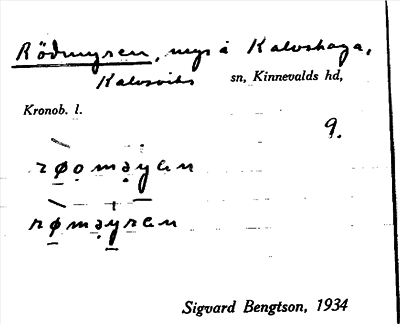 Rödmyren, myr å Kalvshaga,
Kalvsviks sn, Kinnevalds hd,
Kronob. l.
9.
Sigvard Bengtson, 1934